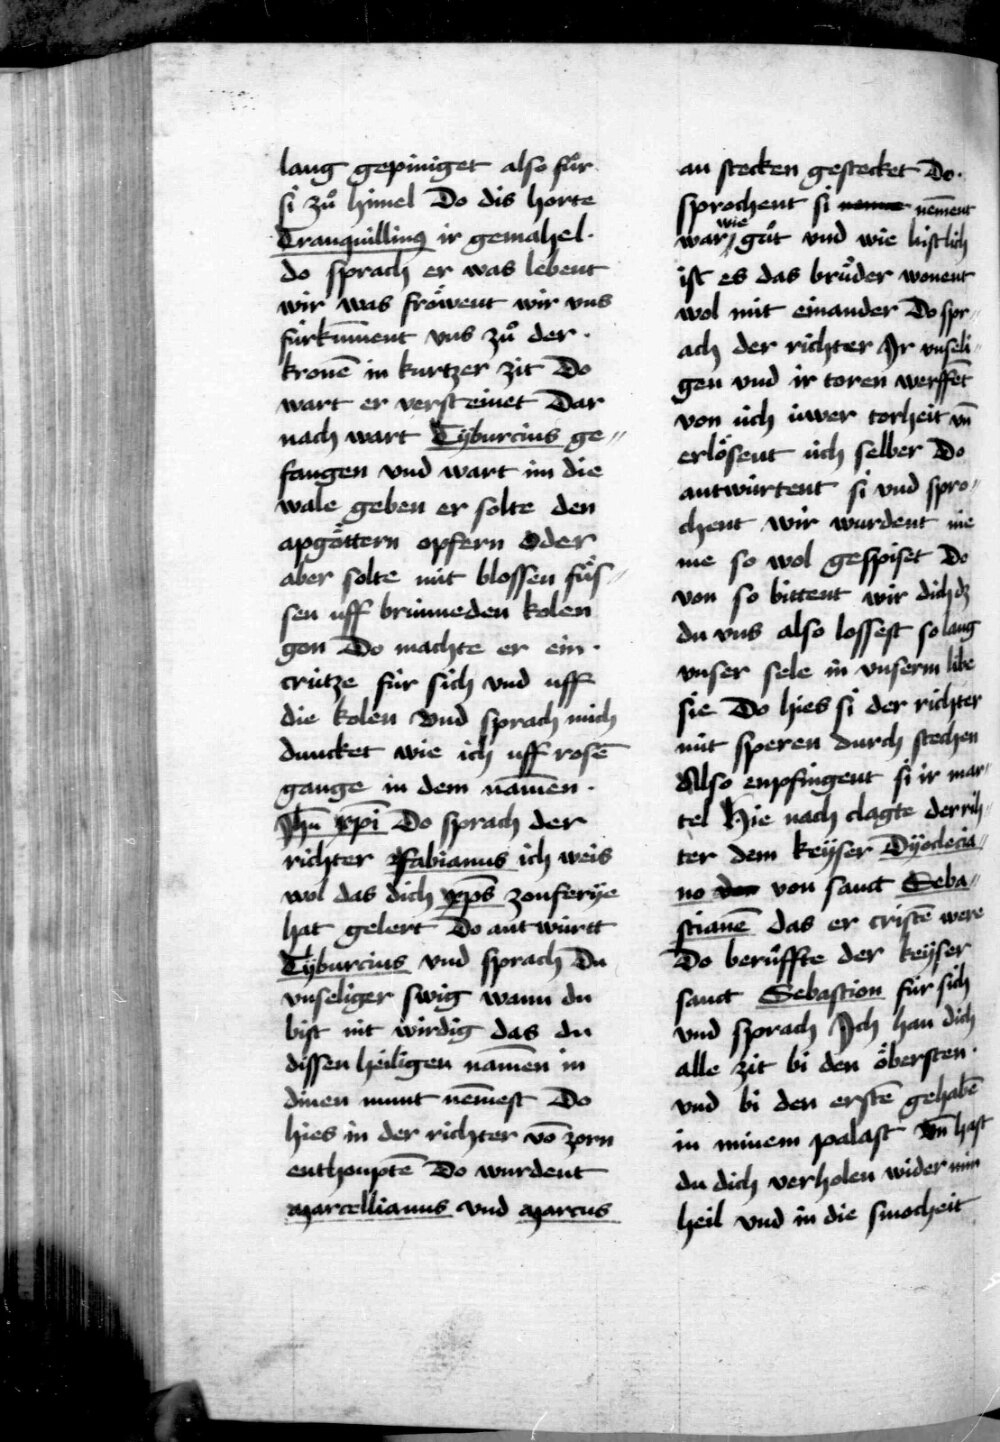 lang gepiniget also fuͦr
si zuͦ himel Do dis horte
Tranquillinꝰ ir gemahel·
do sprach er was lebent
wir was froͤwent wir vns
fúrkum̄ent vns zuͦ der ·
kronē in kurtzer zit Do
wart er versteinet Dar
nach wart Tÿburcius ge〃
fangen vnd wart im die
wale geben er solte den
apgoͤttern opfern Oder
aber solte mit blossen fuͤs〃
sen uff brinneden kolen
gon Do machte er ein ·
crútze fúr sich vnd uff
die kolen vnd sprach mich
duncket wie ich uff rosē
gange in dem nam̄en ·
Jhū xp̄i Do sprach der
richter Fabianus ich weis
wol das dich xp̄s zonferÿe
hat gelert Do antwúrtt
Tÿburcius vnd sprach Du
vnseliger swig wann du
bist nit wirdig das du
dissen heiligen nam̄en in
dinen munt nem̄est Do
hies in der richter vō zorn
enthouptē Do wurdent
Marcellianus vnd Marcus
an stecken gestecket Do·
sprochent si nement
war wie guͦt vnd wie lustlich
ist es das bruͤder wonent
wol mit einander Do spr〃
ach der richter Ir vnseli〃
gen vnd ir toren werffēt
von úch úwer torheit vn̄
erloͤsent úch selber Do
antwúrtent si vnd spro〃
chent wir wurdent nie
me so wol gespiset Do
von so bittent wir dich dz
du vns also lossest so lang
vnser sele in vnserm libe
sie Do hies si der richter
mit speren durch stechen
Also enpfingent si ir mar〃
tel Hie nach clagte der rih〃
ter dem keÿser Dÿoclecia〃
no von sanct Seba〃
stianē das er cristē were
Do beruͤffte der keÿser
sanct Sebastion fúr sich
vnd sprach Ich han dich
alle zit bi den oͤbersten ·
vnd bi den erstē gehabē
in minem palast vn̄ hast
du dich verholen wider min
heil vnd in die smocheit